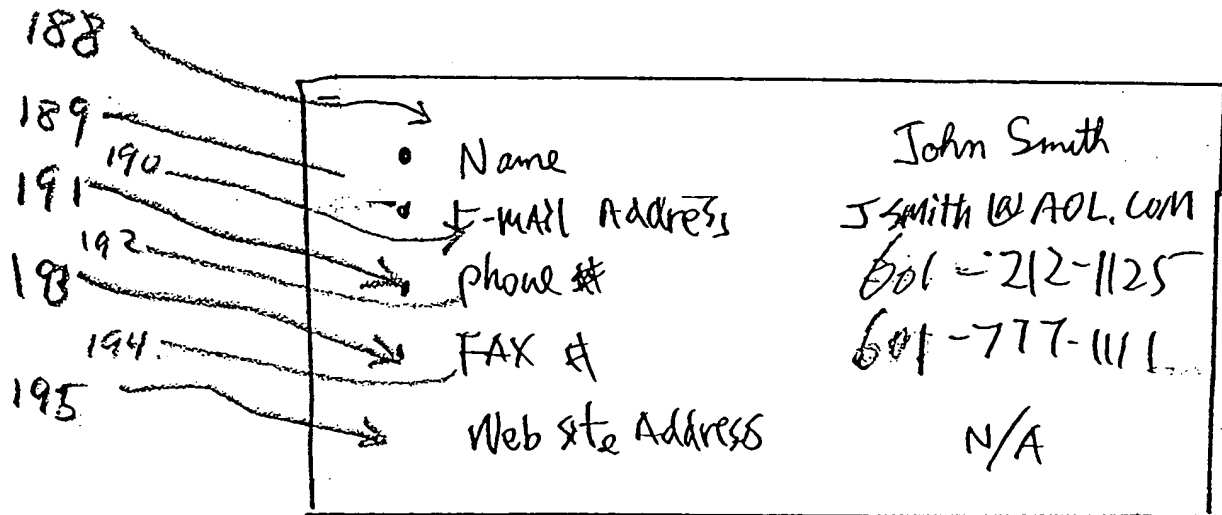 188
189
190
191
192
193
194
195
Name John Smith
E-MAIL Address JSmith@AOL.COM
phone # 601-212-1125
FAX # 601-777-1111
Web site Address N/A